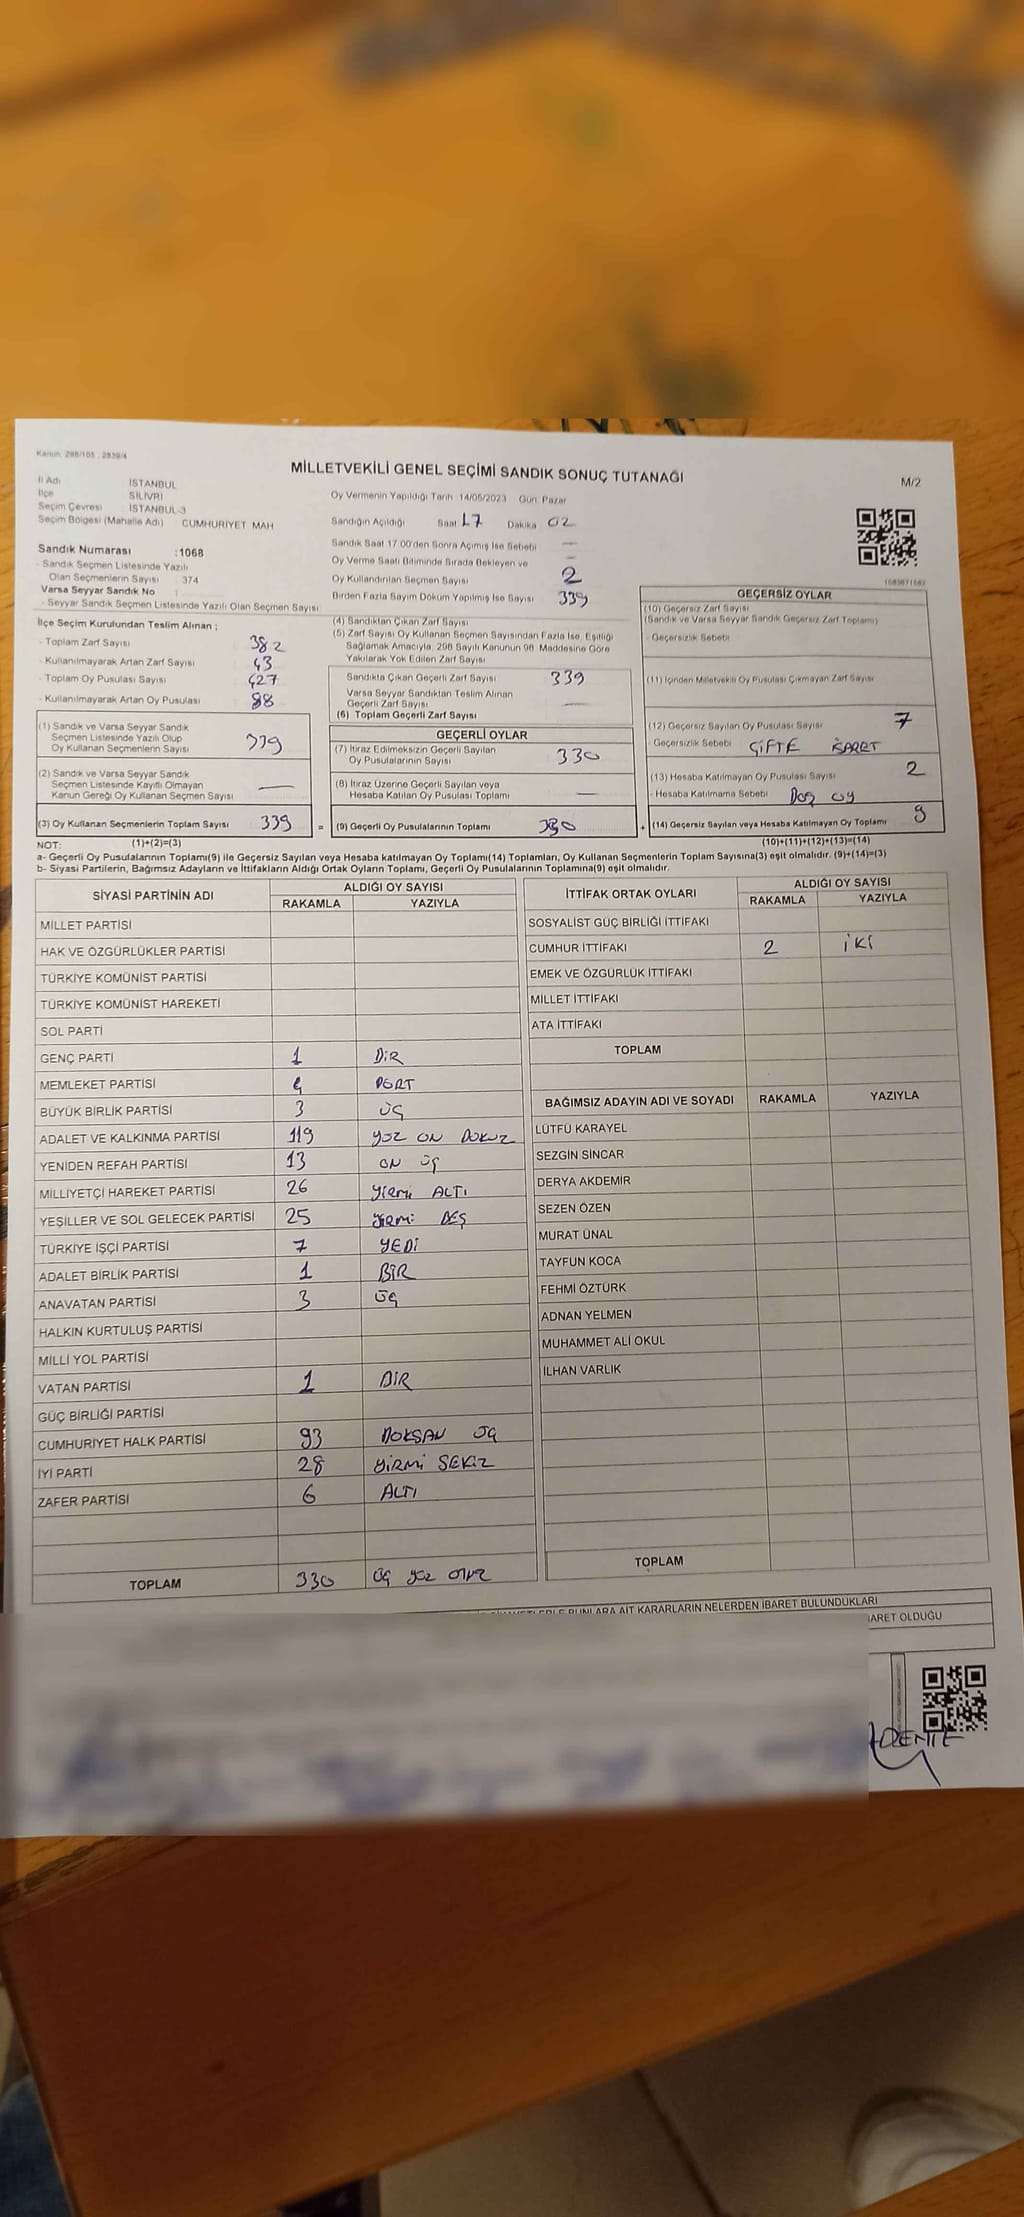 Kanun: 298/105 , 2839/4
MİLLETVEKİLİ GENEL SEÇİMİ SANDIK SONUÇ TUTANAĞI
M/2
İl Adı İSTANBUL
İlçe SİLİVRİ
Seçim Çevresi İSTANBUL-3
Seçim Bölgesi (Mahalle Adı) CUMHURİYET MAH.
Sandık Numarası :1068
- Sandık Seçmen Listesinde Yazılı
Olan Seçmenlerin Sayısı : 374
Varsa Seyyar Sandık No :
- Seyyar Sandık Seçmen Listesinde Yazılı Olan Seçmen Sayısı
Oy Vermenin Yapıldığı Tarih :14/05/2023 Gün: Pazar
Sandığın Açıldığı Saat 17 Dakika 02
Sandık Saat 17:00'den Sonra Açılmış İse Sebebi —
Oy Verme Saati Bitiminde Sırada Bekleyen ve —
Oy Kullandırılan Seçmen Sayısı 2
Birden Fazla Sayım Döküm Yapılmış İse Sayısı 339
İlçe Seçim Kurulundan Teslim Alınan ;
- Toplam Zarf Sayısı 382
- Kullanılmayarak Artan Zarf Sayısı 43
- Toplam Oy Pusulası Sayısı 427
- Kullanılmayarak Artan Oy Pusulası 88
(1) Sandık ve Varsa Seyyar Sandık
Seçmen Listesinde Yazılı Olup
Oy Kullanan Seçmenlerin Sayısı 339
(2) Sandık ve Varsa Seyyar Sandık
Seçmen Listesinde Kayıtlı Olmayan
Kanun Gereği Oy Kullanan Seçmen Sayısı —
(3) Oy Kullanan Seçmenlerin Toplam Sayısı 339
(4) Sandıktan Çıkan Zarf Sayısı
(5) Zarf Sayısı Oy Kullanan Seçmen Sayısından Fazla İse, Eşitliği
Sağlamak Amacıyla, 298 Sayılı Kanunun 98. Maddesine Göre
Yakılarak Yok Edilen Zarf Sayısı
Sandıkta Çıkan Geçerli Zarf Sayısı 339
Varsa Seyyar Sandıktan Teslim Alınan
Geçerli Zarf Sayısı —
(6) Toplam Geçerli Zarf Sayısı
GEÇERLİ OYLAR
(7) İtiraz Edilmeksizin Geçerli Sayılan
Oy Pusulalarının Sayısı 330
(8) İtiraz Üzerine Geçerli Sayılan veya
Hesaba Katılan Oy Pusulası Toplamı —
= (9) Geçerli Oy Pusulalarının Toplamı 330
GEÇERSİZ OYLAR
(10) Geçersiz Zarf Sayısı
(Sandık ve Varsa Seyyar Sandık Geçersiz Zarf Toplamı)
- Geçersizlik Sebebi
(11) İçinden Milletvekili Oy Pusulası Çıkmayan Zarf Sayısı
(12) Geçersiz Sayılan Oy Pusulası Sayısı 7
- Geçersizlik Sebebi ÇİFTE İŞARET
(13) Hesaba Katılmayan Oy Pusulası Sayısı 2
- Hesaba Katılmama Sebebi BOŞ OY
+ (14) Geçersiz Sayılan veya Hesaba Katılmayan Oy Toplamı 9
NOT: (1)+(2)=(3) (10)+(11)+(12)+(13)=(14)
a- Geçerli Oy Pusulalarının Toplamı(9) ile Geçersiz Sayılan veya Hesaba katılmayan Oy Toplamı(14) Toplamları, Oy Kullanan Seçmenlerin Toplam Sayısına(3) eşit olmalıdır. (9)+(14)=(3)
b- Siyasi Partilerin, Bağımsız Adayların ve İttifakların Aldığı Ortak Oyların Toplamı, Geçerli Oy Pusulalarının Toplamına(9) eşit olmalıdır.
SİYASİ PARTİNİN ADI ALDIĞI OY SAYISI
RAKAMLA YAZIYLA
MİLLET PARTİSİ
HAK VE ÖZGÜRLÜKLER PARTİSİ
TÜRKİYE KOMÜNİST PARTİSİ
TÜRKİYE KOMÜNİST HAREKETİ
SOL PARTİ
GENÇ PARTİ 1 BİR
MEMLEKET PARTİSİ 4 DÖRT
BÜYÜK BİRLİK PARTİSİ 3 ÜÇ
ADALET VE KALKINMA PARTİSİ 119 YÜZ ON DOKUZ
YENİDEN REFAH PARTİSİ 13 ON ÜÇ
MİLLİYETÇİ HAREKET PARTİSİ 26 YİRMİ ALTI
YEŞİLLER VE SOL GELECEK PARTİSİ 25 YİRMİ BEŞ
TÜRKİYE İŞÇİ PARTİSİ 7 YEDİ
ADALET BİRLİK PARTİSİ 1 BİR
ANAVATAN PARTİSİ 3 ÜÇ
HALKIN KURTULUŞ PARTİSİ
MİLLİ YOL PARTİSİ
VATAN PARTİSİ 1 BİR
GÜÇ BİRLİĞİ PARTİSİ
CUMHURİYET HALK PARTİSİ 93 DOKSAN ÜÇ
İYİ PARTİ 28 YİRMİ SEKİZ
ZAFER PARTİSİ 6 ALTI
TOPLAM 330 ÜÇ YÜZ OTUZ
İTTİFAK ORTAK OYLARI ALDIĞI OY SAYISI
RAKAMLA YAZIYLA
SOSYALİST GÜÇ BİRLİĞİ İTTİFAKI
CUMHUR İTTİFAKI 2 İKİ
EMEK VE ÖZGÜRLÜK İTTİFAKI
MİLLET İTTİFAKI
ATA İTTİFAKI
TOPLAM
BAĞIMSIZ ADAYIN ADI VE SOYADI RAKAMLA YAZIYLA
LÜTFÜ KARAYEL
SEZGİN SİNCAR
DERYA AKDEMİR
SEZEN ÖZEN
MURAT ÜNAL
TAYFUN KOCA
FEHMİ ÖZTÜRK
ADNAN YELMEN
MUHAMMET ALİ OKUL
İLHAN VARLIK
TOPLAM
BUNLARA AİT KARARLARIN NELERDEN İBARET BULUNDUKLARI
OLDUĞU